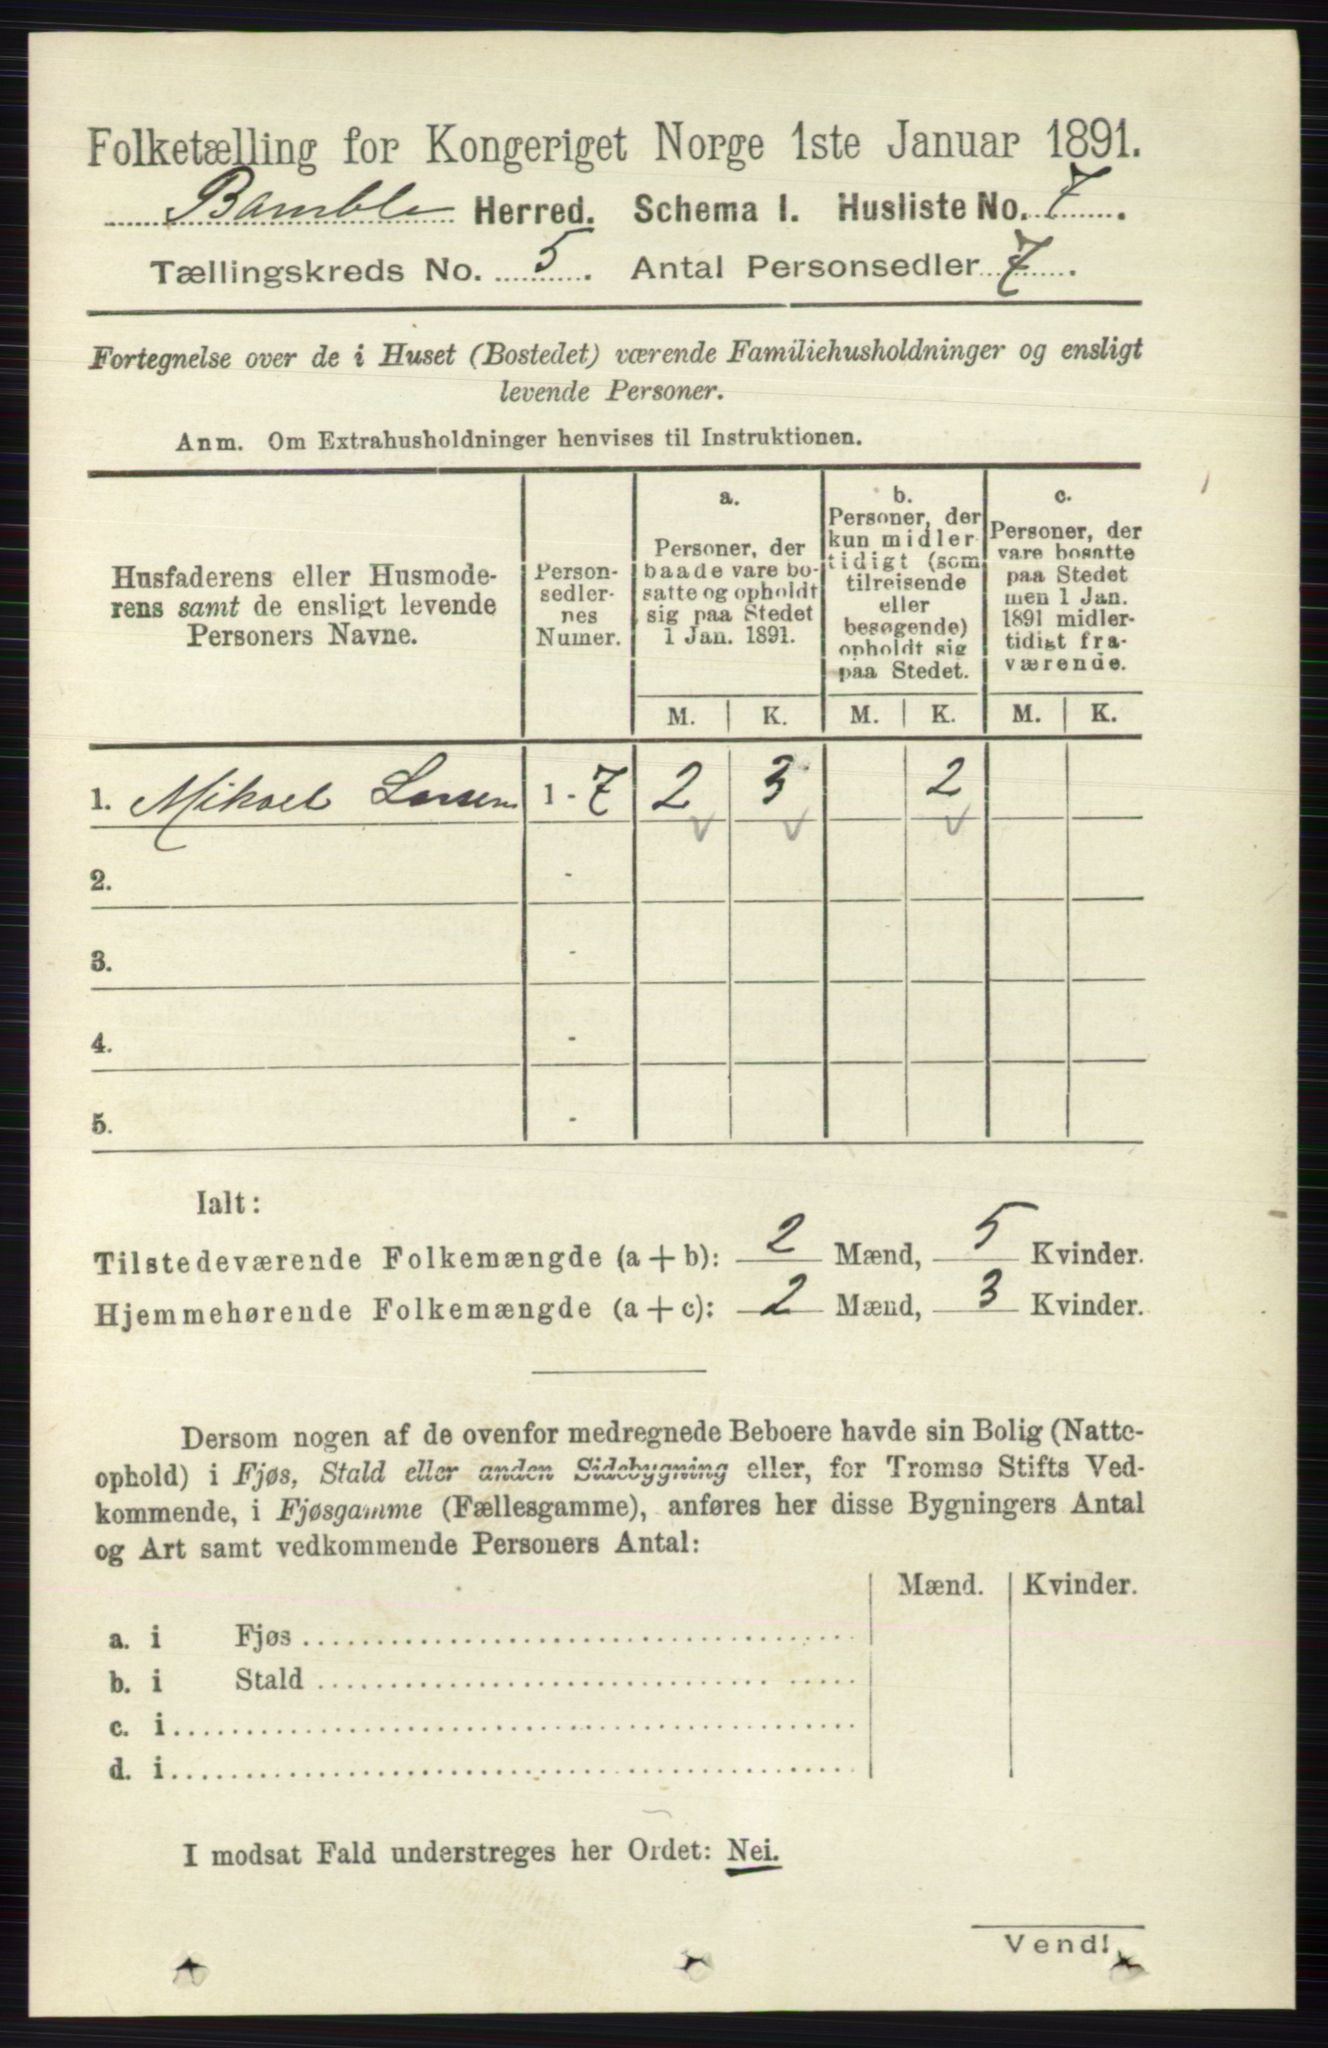 Folketælling for Kongeriget Norge 1ste Januar 1891.
Bamble Herred. Schema I. Husliste No. 7.
Tællingskreds No. 5. Antal Personsedler 7.
Fortegnelse over de i Huset (Bostedet) værende Familiehusholdninger og ensligt
levende Personer.
Anm. Om Extrahusholdninger henvises til Instruktionen.
Husfaderens eller Husmode-
rens samt de ensligt levende
Personers Navne.
Person-
sedler-
nes
Numer.
a.
Personer, der
baade vare bo-
satte og opholdt
sig paa Stedet
1 Jan. 1891.
b.
Personer, der
kun midler-
tidigt (som
tilreisende
eller
besøgende)
opholdt sig
paa Stedet.
c.
Personer, der
vare bosatte
paa Stedet
men 1 Jan.
1891 midler-
tidigt fra-
værende.
M. K. M. K. M. K.
1. Mikael Larsen 1 - 7 2 3 2
2. -
3. -
4. -
5. -
Ialt:
Tilstedeværende Folkemængde (a + b): 2 Mænd, 5 Kvinder.
Hjemmehørende Folkemængde (a + c): 2 Mænd, 3 Kvinder.
Dersom nogen af de ovenfor medregnede Beboere havde sin Bolig (Natte-
ophold) i Fjøs, Stald eller anden Sidebygning eller, for Tromsø Stifts Ved-
kommende, i Fjøsgamme (Fællesgamme), anføres her disse Bygningers Antal
og Art samt vedkommende Personers Antal:
Mænd. Kvinder.
a. i Fjøs
b. i Stald
c. i
d. i
I modsat Fald understreges her Ordet: Nei.
Vend!